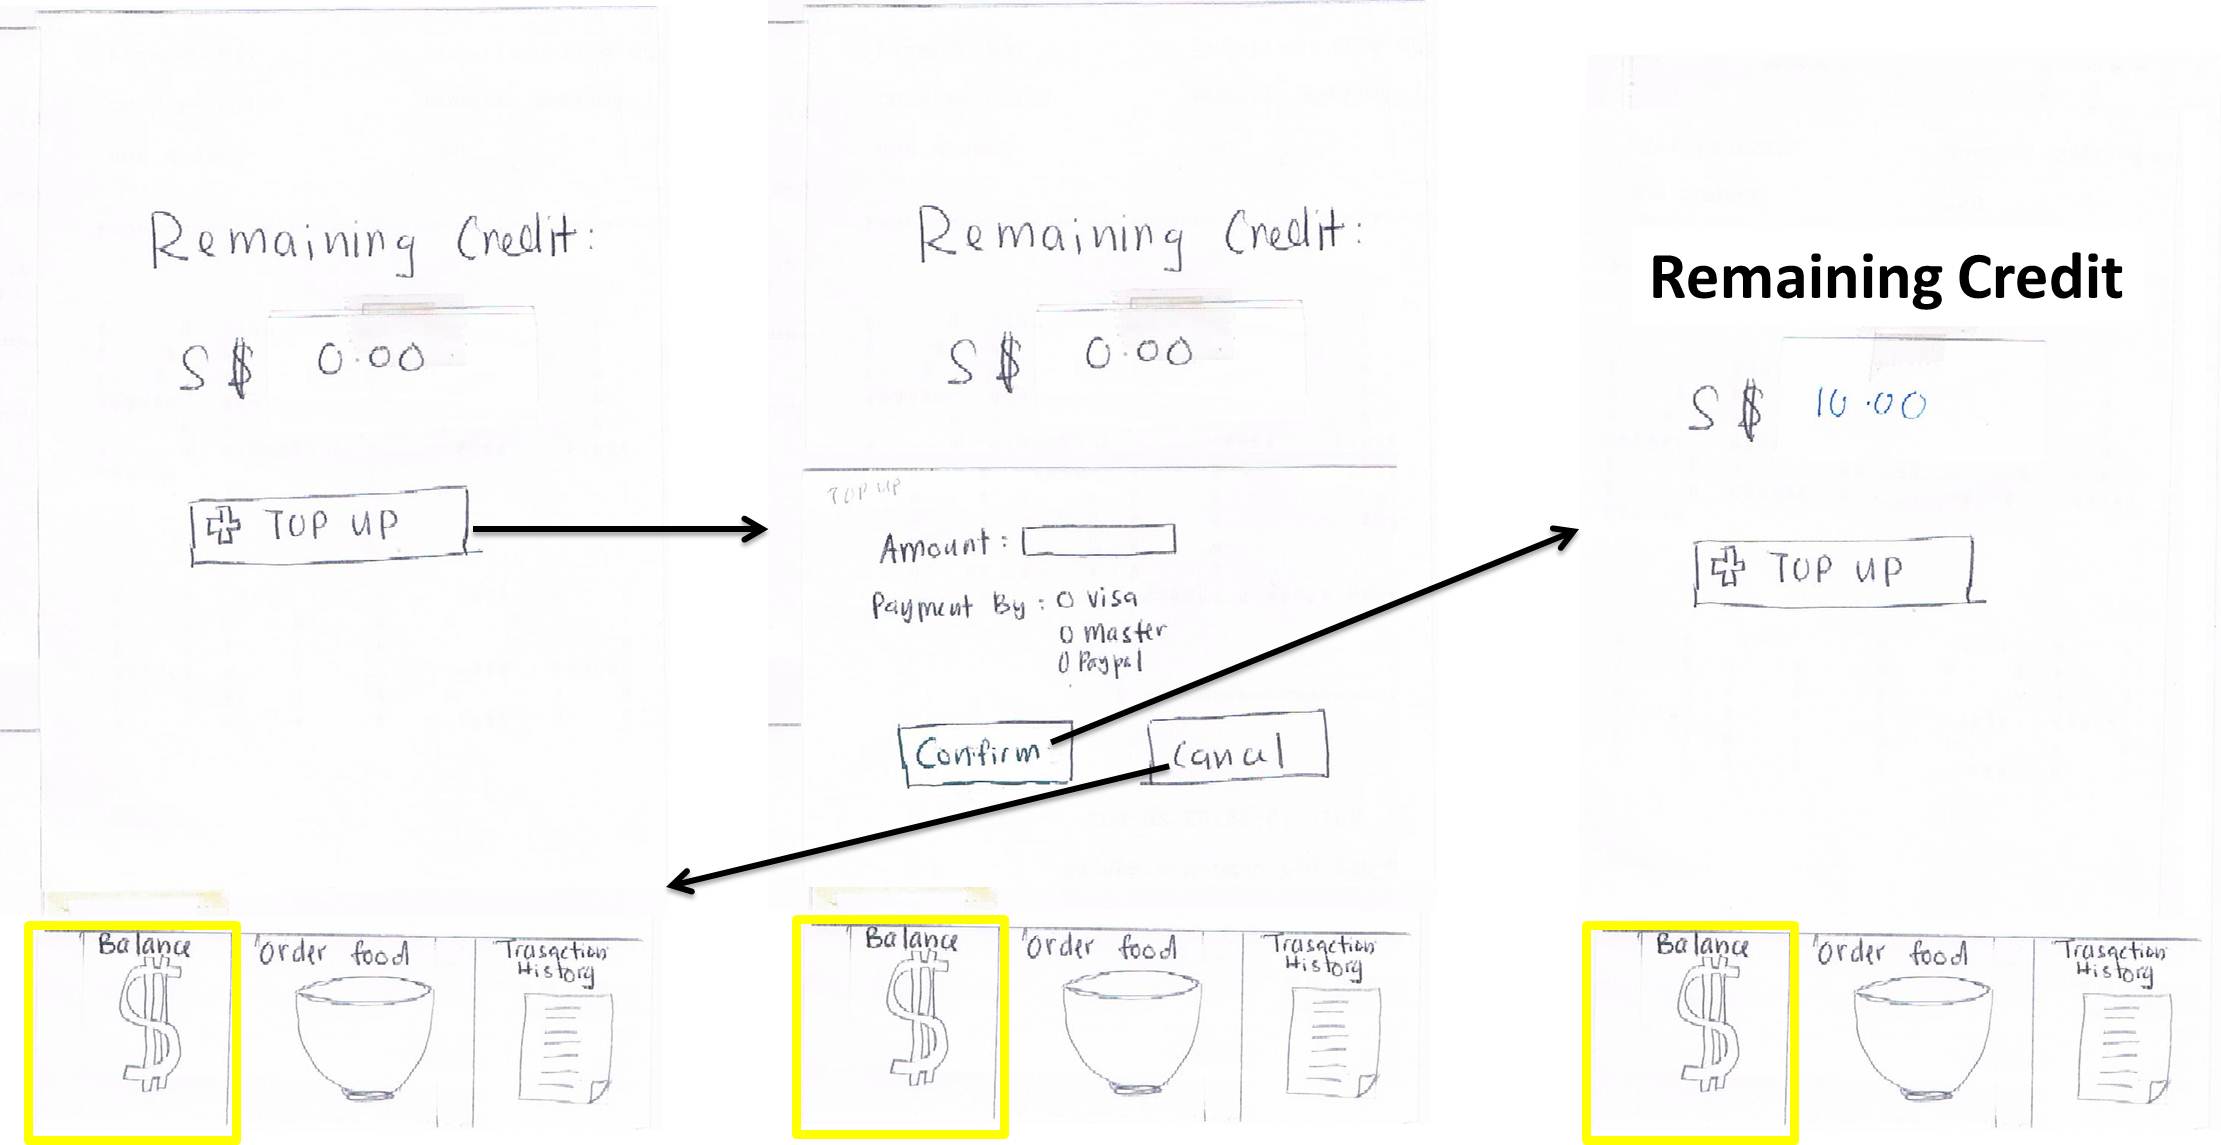 Remaining Credit:
S$ 0.00
TOP UP
Balance
Order food
Trasaction
History
Remaining Credit:
S$ 0.00
TOP UP
Amount:
Payment By: O Visa
O Master
O Paypal
Confirm
Cancel
Balance
Order food
Trasaction
History
Remaining Credit
S$ 10.00
TOP UP
Balance
Order food
Trasaction
History